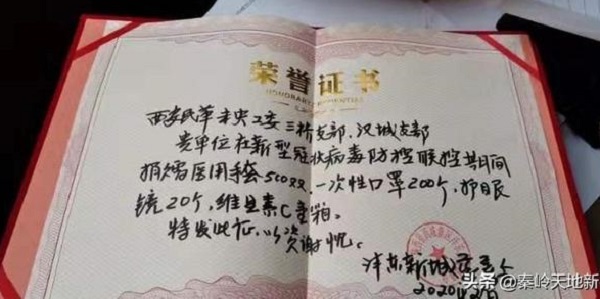 荣誉证书
HONORARY
西安民革未央工委三桥支部、汉城支部
贵单位在新型冠状病毒防控联控共期间
捐赠医用手套500双,一次性口罩200个,护目
镜20个,维生素C壹箱。
特发此证,以资谢忱。
沣东新城
2020.2
头条 @秦岭天地新